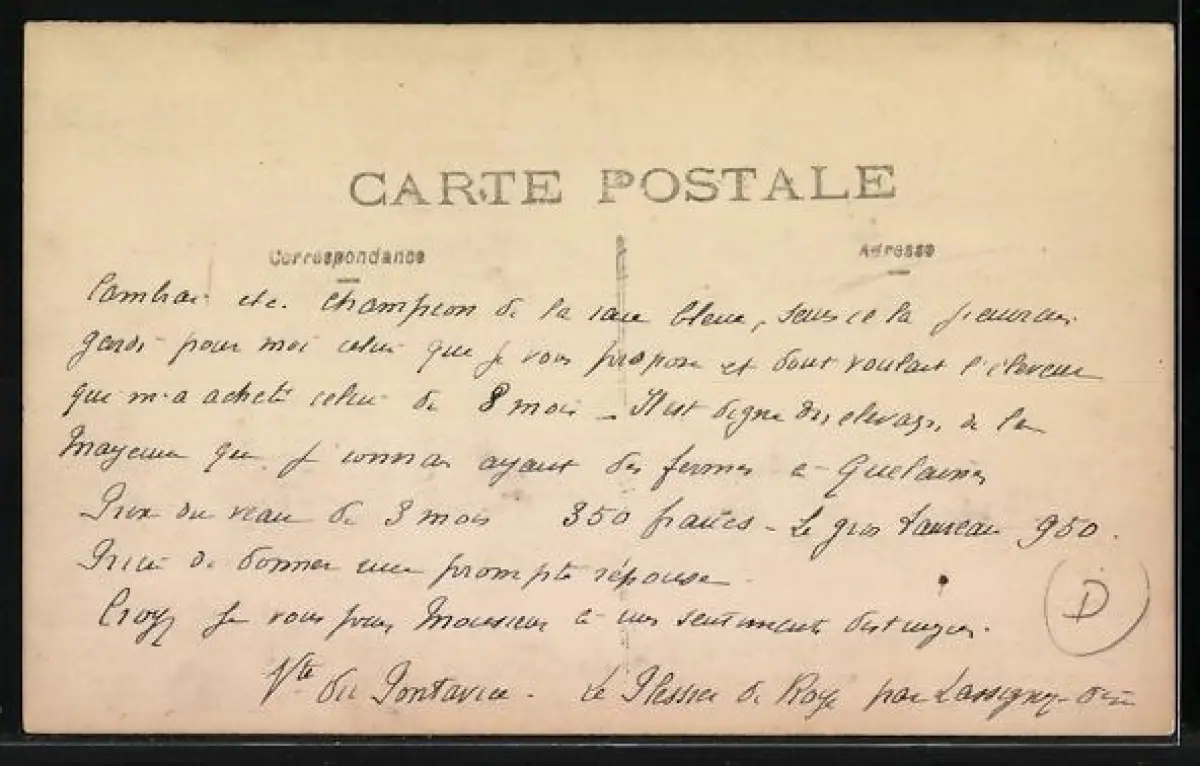 CARTE POSTALE
Correspondance
Adresse
Cambrai etc. champion de la race bleue, sans cela j'aurais
gardé pour moi celui que je vous propose et dont voulait l'éleveur
qui m'a acheté celui de 8 mois – Il est digne des élevages de la
Mayenne que je connais ayant des fermes à Quelaines
Prix du veau de 3 mois 350 francs – Le gros taureau 950.
Prière de donner une prompte réponse
Croyez je vous prie Monsieur à mes sentiments distingués.
Vte du Pontavice. Le Plessier de Roye par Lassigny
D